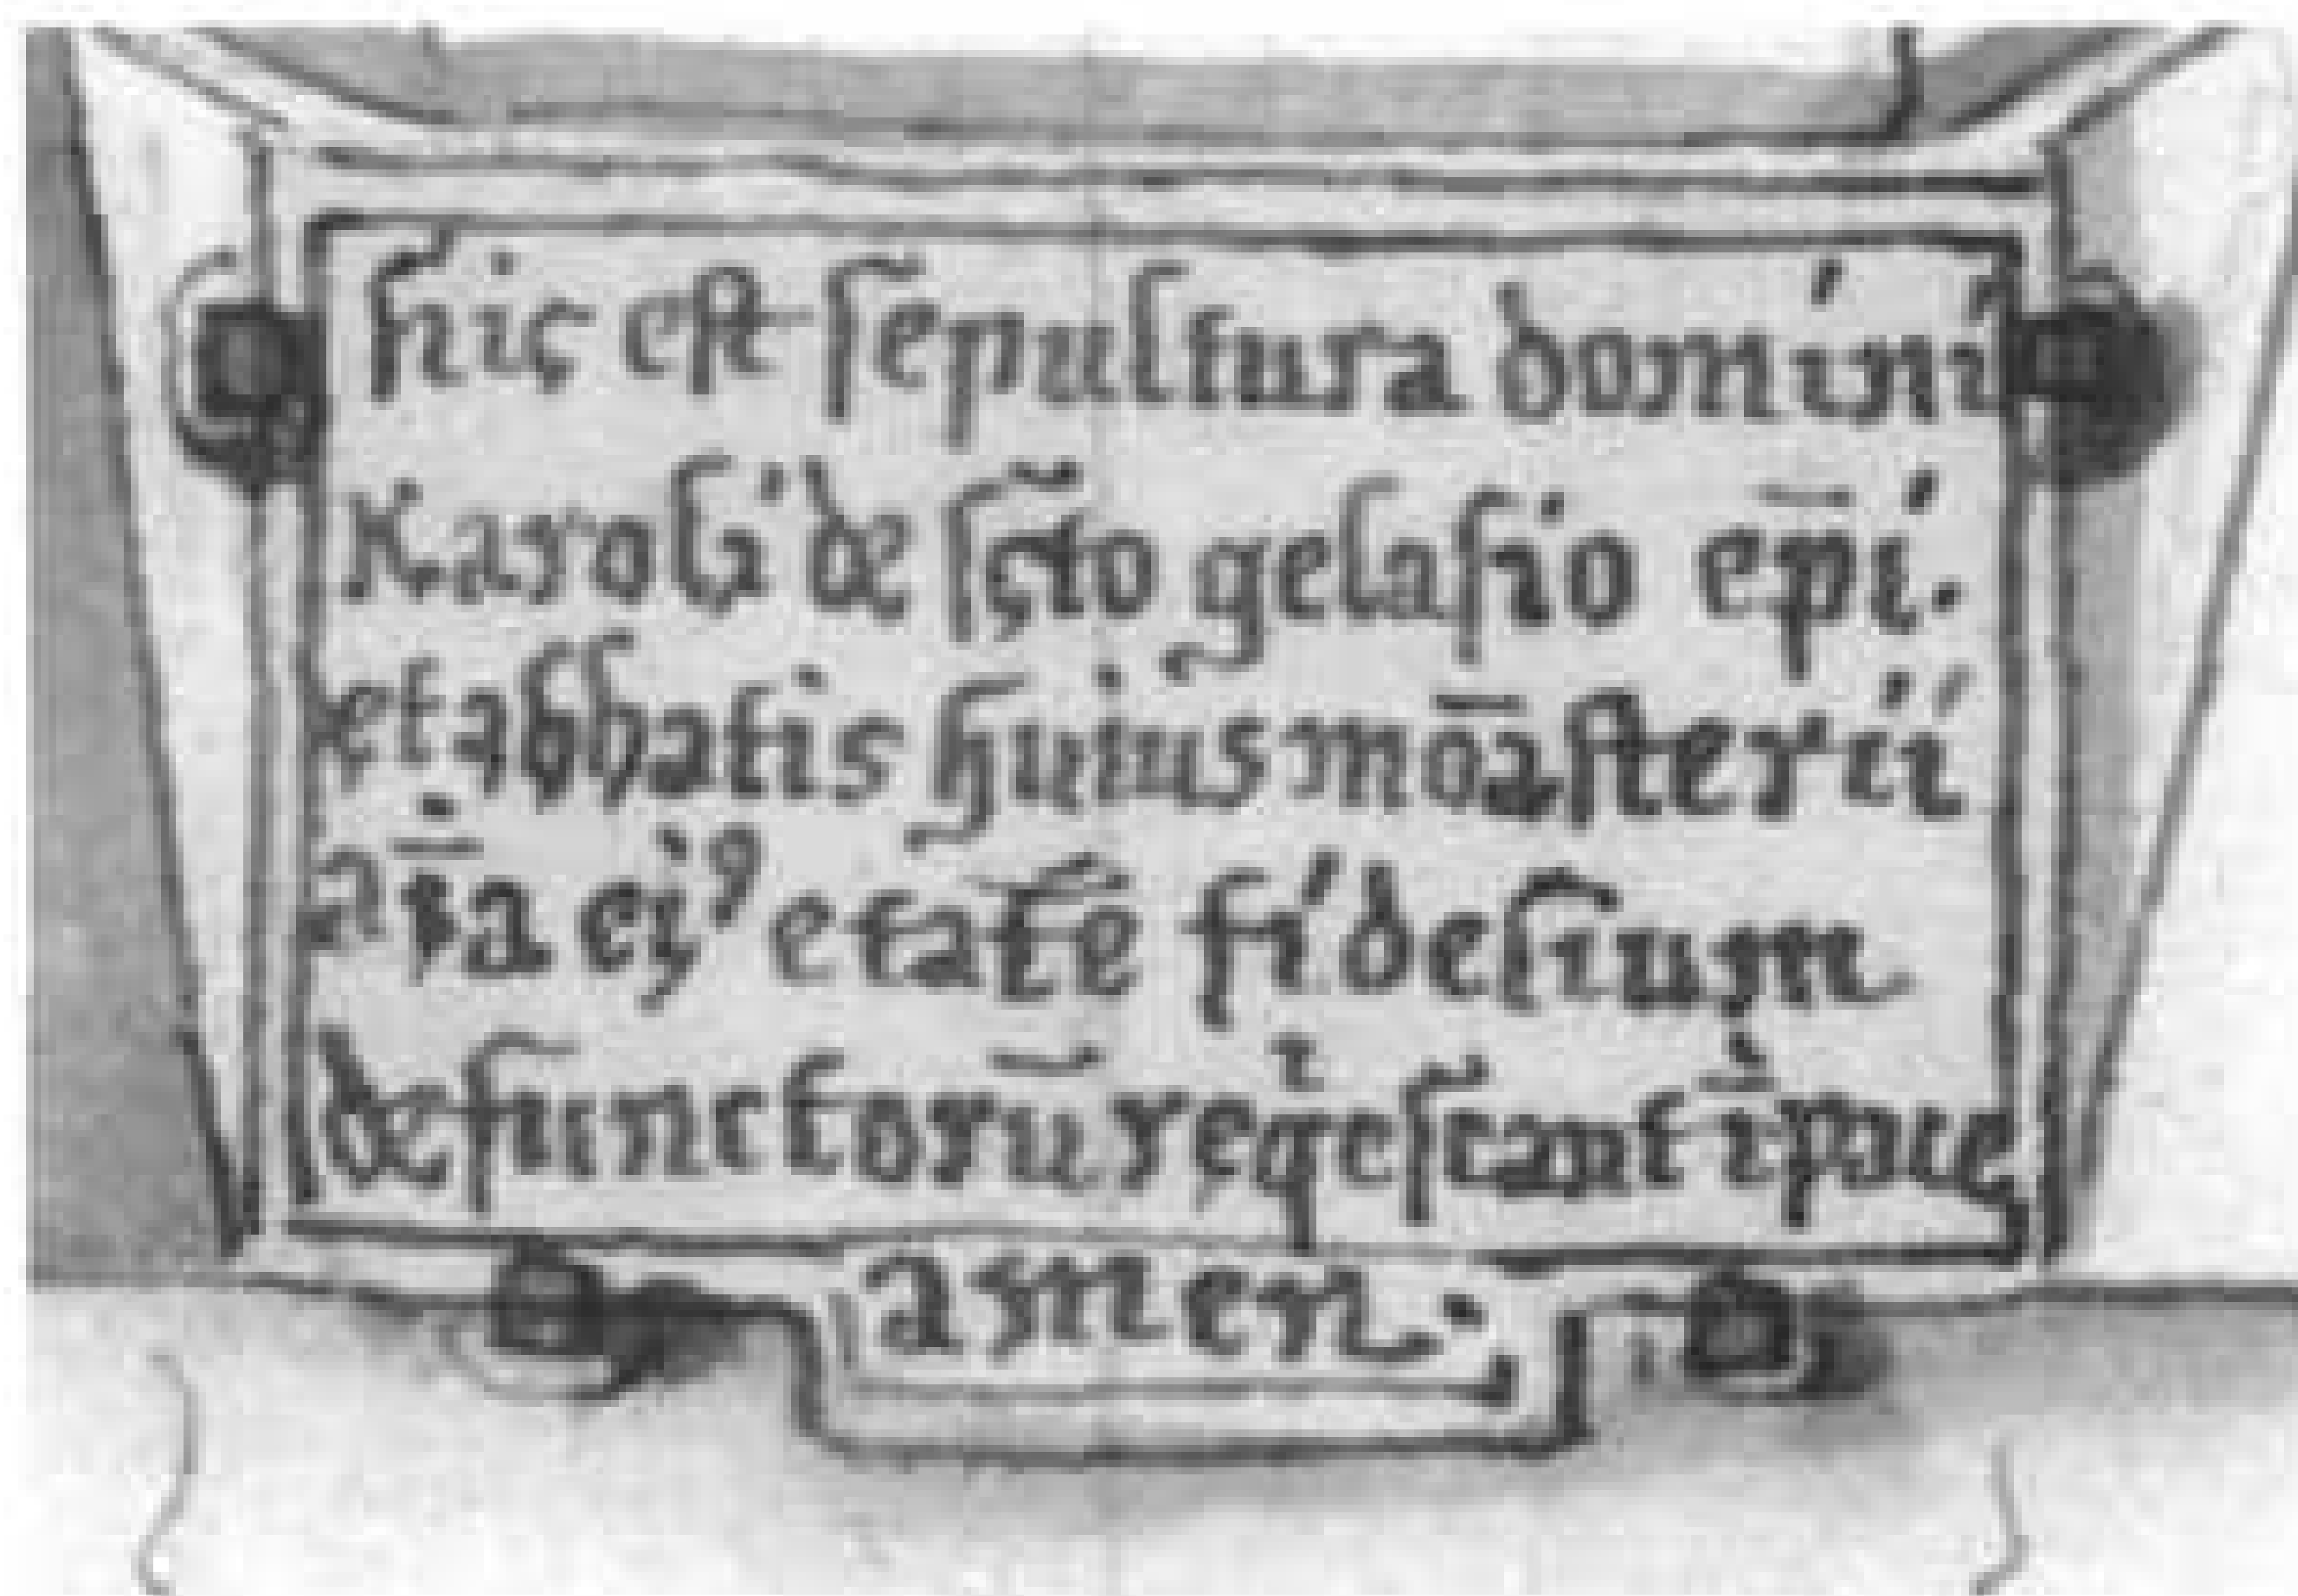 hic est sepultura domini
Karoli de sc̃to gelasio ep̄i.
et abbatis huius mōasterii
aīa eiꝰ et at̄e fidelium
defunctorū reqͥescant ī pace
amen.